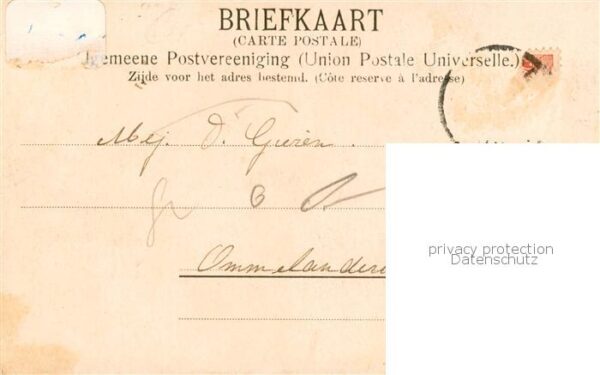 BRIEFKAART
(CARTE POSTALE)
lgemeene Postvereeniging (Union Postale Universelle.)
Zijde voor het adres bestemd. (Côté réservé à l'adresse)
Mej. D.
6
Ommelandere
privacy protection
Datenschutz